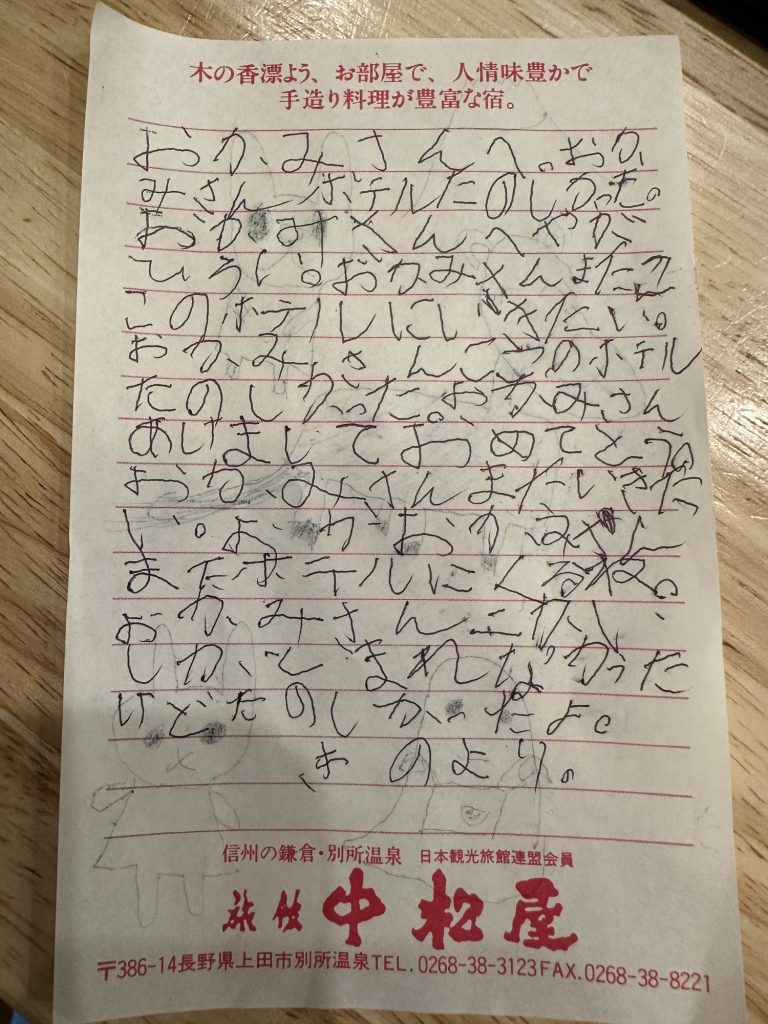 木の香漂よう、お部屋で、人情味豊かで
手造り料理が豊富な宿。
おかみさんへ。おか
みさんホテルたのしかった。
おかみさんへやが
ひろい。おかみさんまた
このホテルにいきたい。
おかみさんこのホテル
たのしかった。おかみさん
あけましておめでとう
おかみさんまたいきた
い。
またホテルにくるね。
おかみさん
しかとまれなかった
けどたのしかったよ。
きのより。
信州の鎌倉・別所温泉 日本観光旅館連盟会員
旅館 中松屋
〒386-14長野県上田市別所温泉TEL.0268-38-3123FAX.0268-38-8221